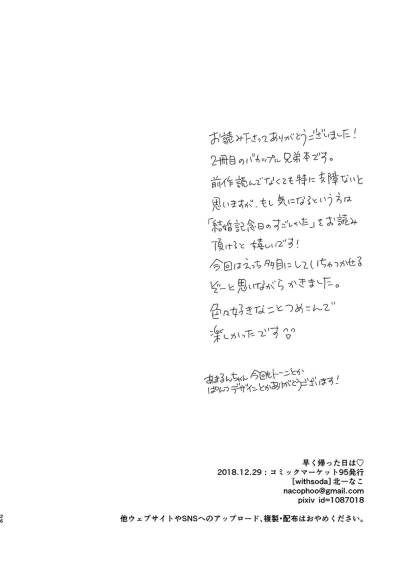 お読み下さってありがとうございました!
2冊目のバカップル兄弟本です。
前作読んでなくても特に支障ないと
思いますが、もし気になるという方は
「結婚記念日のすごしかた」をお読み
頂けると嬉しいです!
今回はえっち多目にしていちゃつかせる
ぞーと思いながらかきました。
色々好きなことつめこんで
楽しかったです♡♡
あまるんちゃん今回もトーンとか
ぱんつデザインとかありがとうございます!
早く帰った日は♡
2018.12.29 : コミックマーケット95発行
[withsoda] 北一なこ
nacophoo@gmail.com
pixiv id=1087018
他ウェブサイトやSNSへのアップロード、複製・配布はおやめください。